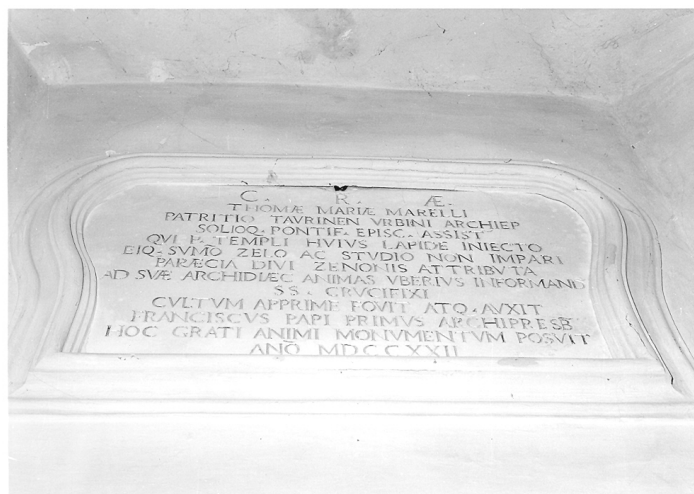 C. R. Æ.
THOMÆ MARIÆ MARELLI
PATRITIO TAVRINEN VRBINI ARCHIEP
SOLIOQ. PONTIF. EPISC. ASSIST
QVI P. TEMPLI HVIVS LAPIDE INIECTO
EIQ. SVMO ZELO AC STVDIO NON IMPARI
PARÆCIA DIVI ZENONIS ATTRIBVTA
AD SVÆ ARCHIDIÆC ANIMAS VBERIVS INFORMAND
SS. CRVCIFIXI
CVLTVM APPRIME FOVIT ATQ. AVXIT
FRANCISCVS PAPI PRIMVS ARCHIPRESB̄
HOC GRATI ANIMI MONVMENTVM POSVIT
ANÕ MDCCXXII